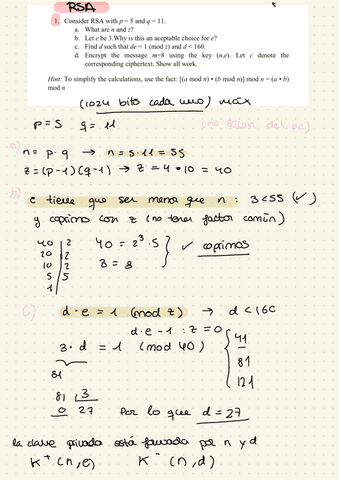 RSA
1. Consider RSA with p = 5 and q = 11.
a. What are n and z?
b. Let e be 3. Why is this an acceptable choice for e?
c. Find d such that de = 1 (mod z) and d < 160.
d. Encrypt the message m=8 using the key (n,e). Let c denote the
corresponding ciphertext. Show all work.
Hint: To simplify the calculations, use the fact: [(a mod n) • (b mod n)] mod n = (a • b)
mod n
(1024 bits cada uno) máx
p = 5 q = 11 (no salen del pc)
a)
n = p · q → n = 5 · 11 = 55
z = (p-1)(q-1) → z = 4 · 10 = 40
b)
e tiene que ser menor que n : 3 < 55 (✓)
y coprimo con z (no tener factor común)
40 | 2 40 = 2³ · 5
20 | 2 ✓ coprimos
10 | 2 3 = 3
5 | 5
1
c) d · e = 1 (mod z) → d < 160
d · e - 1 : z = 0
3 · d = 1 (mod 40)
41
81
121
81
81 3
0 27 Por lo que d = 27
la clave privada está formada por n y d
K⁺ (n, e) K⁻ (n, d)